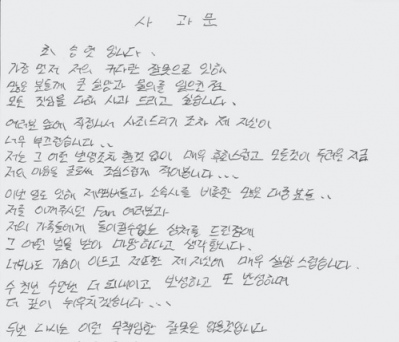 사과문
최승현 입니다..
가장 먼저 저의 커다란 잘못으로 인해
많은 분들께 큰 실망과 물의를 일으킨 점
모든 진심을 다해 사과 드리고 싶습니다.
여러분 앞에 직접나서 사죄드리기 조차 제 자신이
너무 부끄럽습니다..
저는 그 어떤 변명조차 할것 없이 매우 후회스럽고 모든것이 두려운 지금
저의 마음을 글로써 조심스럽게 적어봅니다...
이번 일로 인해 제 멤버들과 소속사를 비롯한 모든 대중분들..
저를 아껴주시던 Fan 여러분과
저의 가족들에게 돌이킬수없는 상처를 드린점에
그 어떤 벌을 받아 마땅하다고 생각합니다.
너무나도 가슴이 아프고 자포한 제 자신에 매우 실망스럽습니다.
수 천번 수만번 더 되내이고 반성하고 또 반성하며
더 깊이 뉘우치겠습니다...
두번 다시는 이런 무책임한 잘못은 없을것입니다